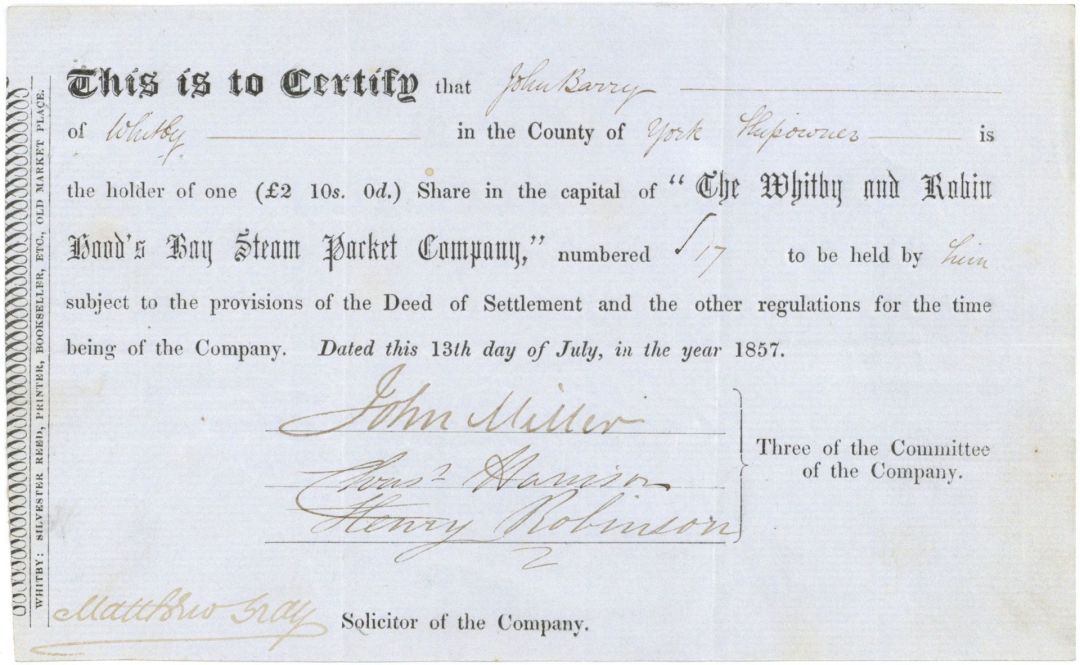 This is to Certify that John Barry
of Whitby in the County of York Shipowner is
the holder of one (£2 10s. 0d.) Share in the capital of "The Whitby and Robin
Hood's Bay Steam Packet Company," numbered 17 to be held by him
subject to the provisions of the Deed of Settlement and the other regulations for the time
being of the Company. Dated this 13th day of July, in the year 1857.
John Miller
Chas. Harrison
Henry Robinson
Three of the Committee
of the Company.
Matthew Gray Solicitor of the Company.
WHITBY: SILVESTER REED, PRINTER, BOOKSELLER, ETC., OLD MARKET PLACE.